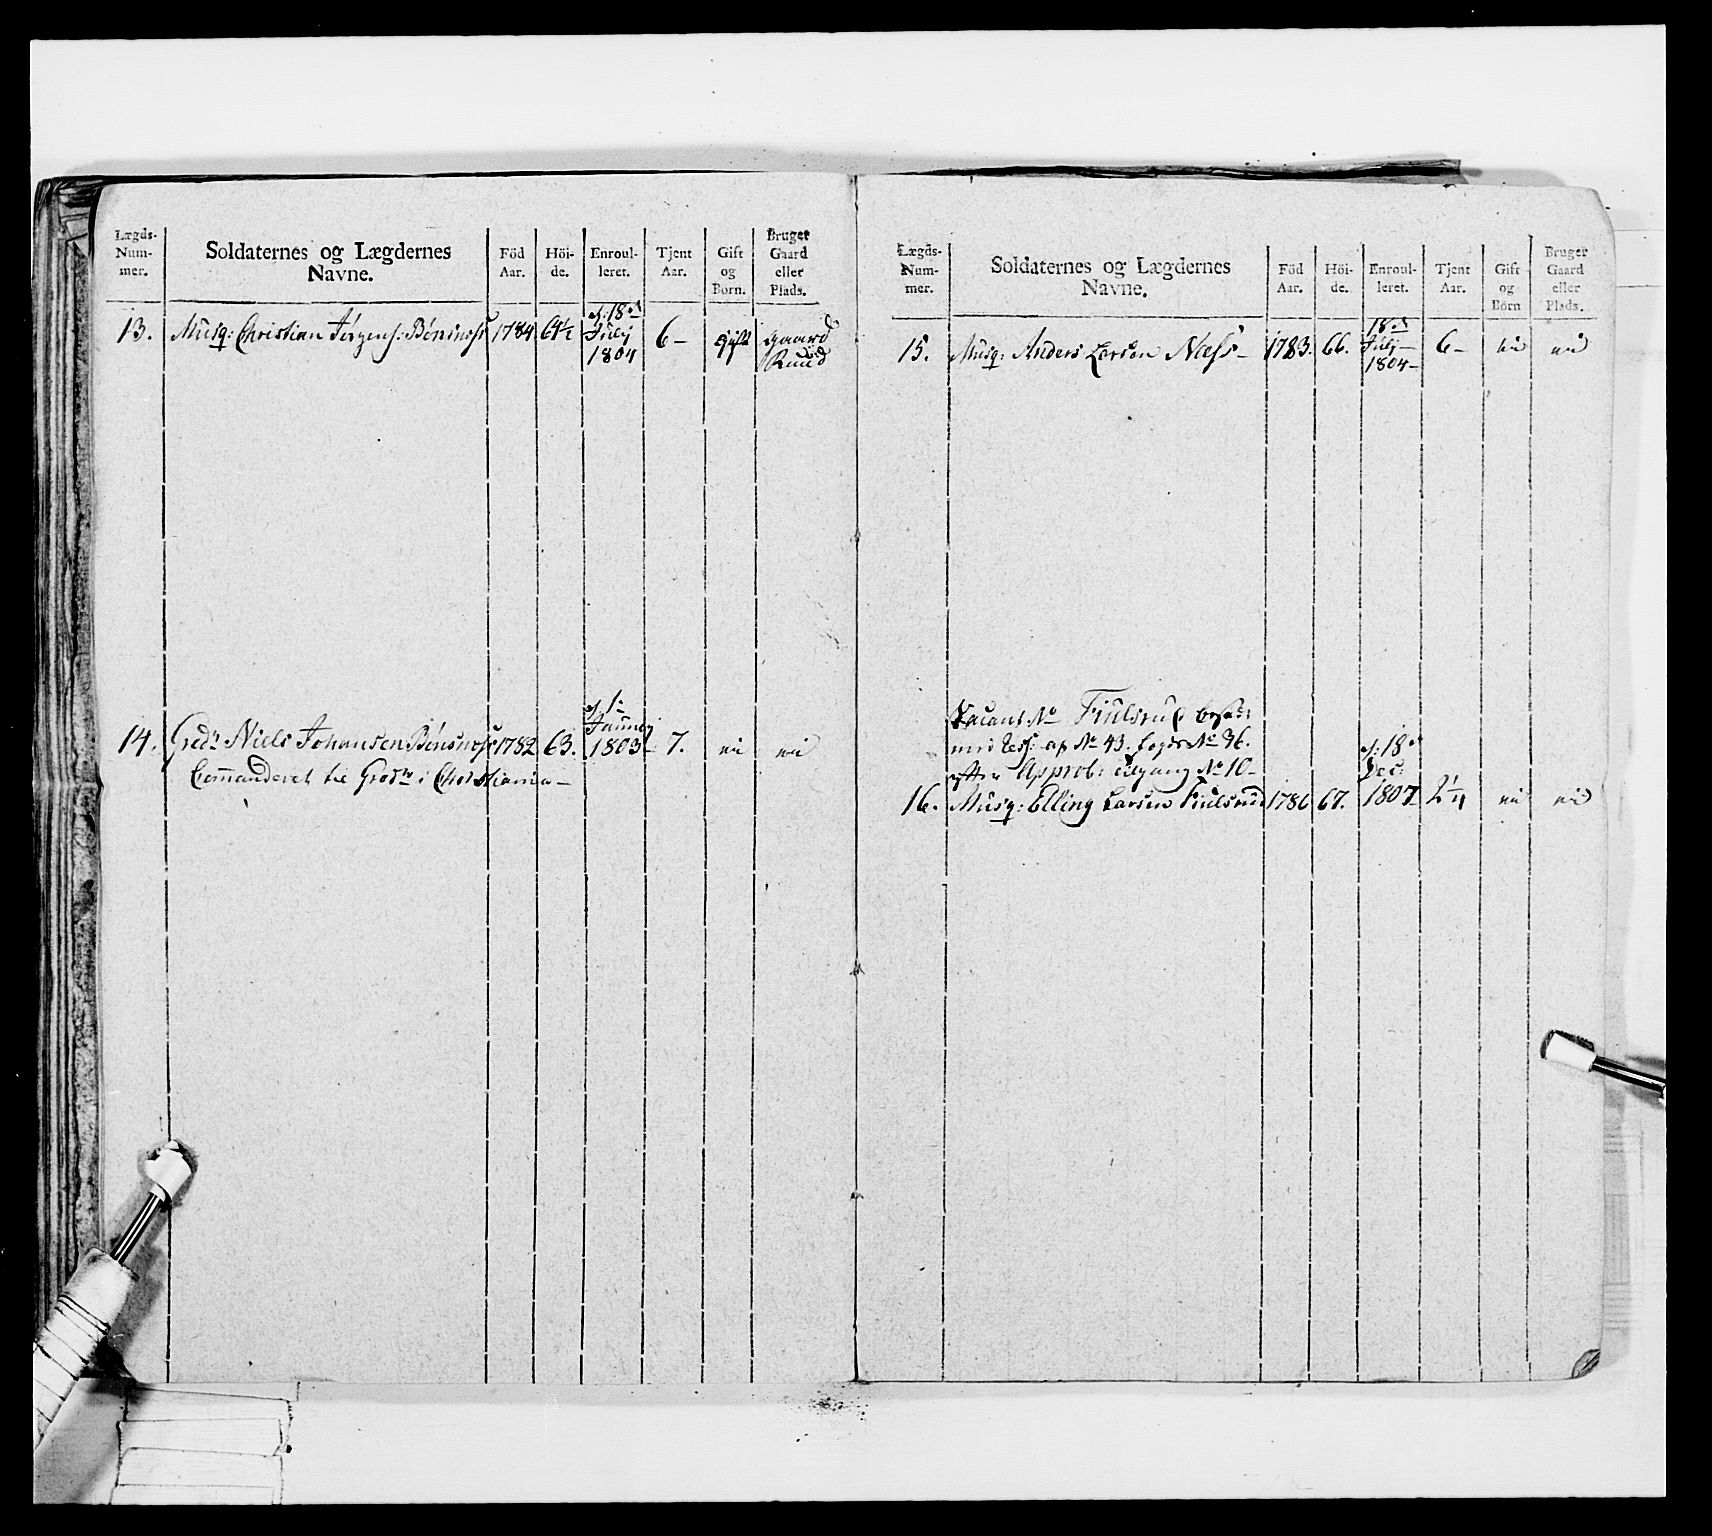 Lægds-Num-mer. Soldaternes og Lægdernes Navne. Föd Aar. Höi-de. Enroul-leret. Tjent Aar. Gift og Born. Bruger Gaard eller Plads.
13. Musq: Christian Jørgens: Bønsnæss 1784 64½ d: 18de July 1804 6– gift gaard Ruud
14. Gredr Niels Johansen Bønsnæss 1782 63. d: 1e Januarj 1803– 7. nei nei
Commanderet til Gredre i Christiania–
Lægds-Num-mer. Soldaternes og Lægdernes Navne. Föd Aar. Höi-de. Enroul-leret. Tjent Aar. Gift og Börn Bruger Gaard eller Plads.
15. Musq: Anders Larsen Næss– 1783. 66. 18de July– 1804– 6– nei nei
Vacant No Fiulsrud besadt
med Ress: af No 43. Logde No 36.
efter Approb: tilgang No 10–
16. Musq: Elling Larsen Fiulsrud 1786 67. d: 18de Dec: 1807. 2¼ nei nei